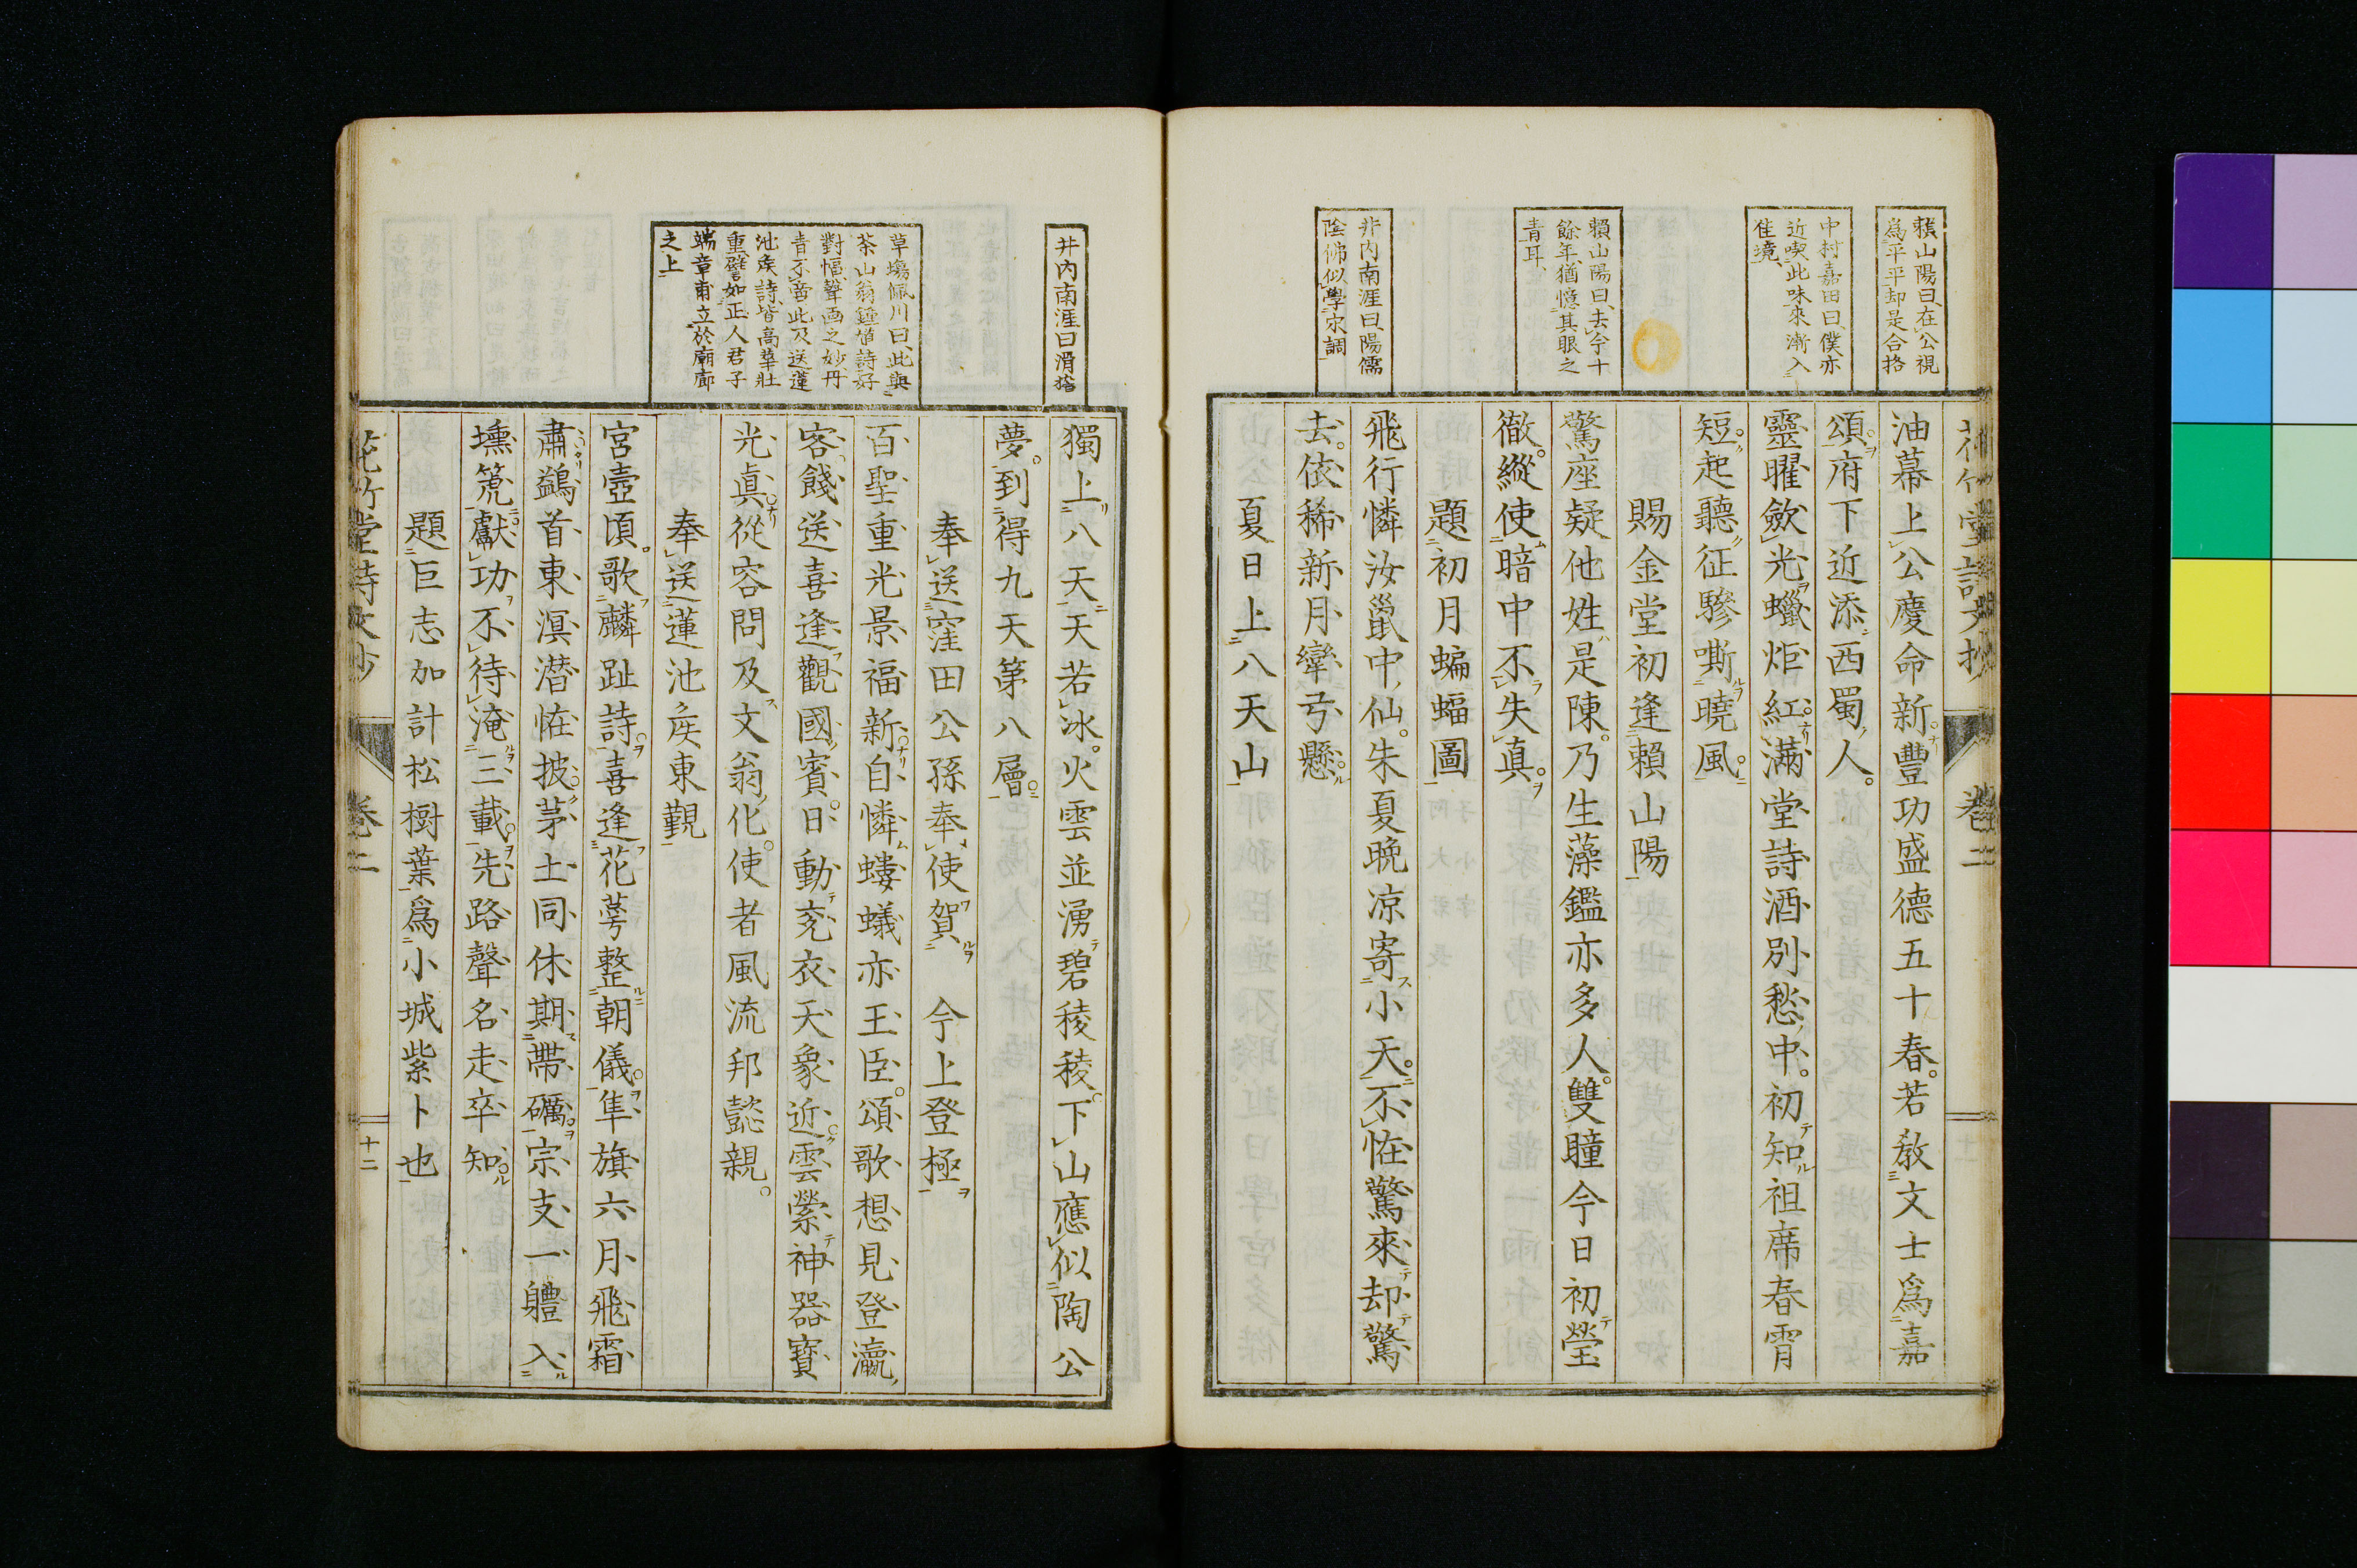 賴山陽曰在公視
爲平平却是合格
中村嘉田曰僕亦
近喫此味來漸入
佳境
賴山陽曰去今十
餘年猶憶其眼之
青耳
井内南涯曰陽儒
陰佛似學宋調
油幕上公慶命新豐功盛德五十春若教文士爲嘉
頌府下近添西蜀人
靈曜斂光蠟炬紅滿堂詩酒別愁中初知祖席春宵
短起聽征驂嘶曉風
賜金堂初逢賴山陽
驚座疑他姓是陳乃生藻鑑亦多人雙瞳今日初瑩
徹縱使暗中不失真
題初月蝙蝠圖
飛行憐汝鼠中仙朱夏晩凉寄小天不恠驚來却驚
去依稀新月彎弓懸
夏日上八天山
卷二
井内南涯曰滑稽
草塲佩川曰此與
茶山翁鍾馗詩好
對幅聲画之妙丹
青不啻此及送蓮
池矦詩皆高華壯
重譬如正人君子
端章甫立於廟廊
之上
獨上八天天若冰火雲並湧碧稜稜下山應似陶公
夢到得九天第八層
奉送窪田公孫奉使賀 今上登極
百聖重光景福新自憐螻蟻亦王臣頌歌想見登瀛
客餞送喜逢觀國賓日動兖衣天象近雲縈神器寶
光眞從容問及文翁化使者風流邦懿親
奉送蓮池矦東覲
宮壺頃歌麟趾詩喜逢花萼整朝儀隼旗六月飛霜
肅鷁首東溟潜恠披茅土同休期帶礪宗支一軆入
壎篪獻功不待淹三載先路聲名走卒知
題巨志加計松樹葉爲小城紫卜也
花竹堂詩文抄
卷二
十二